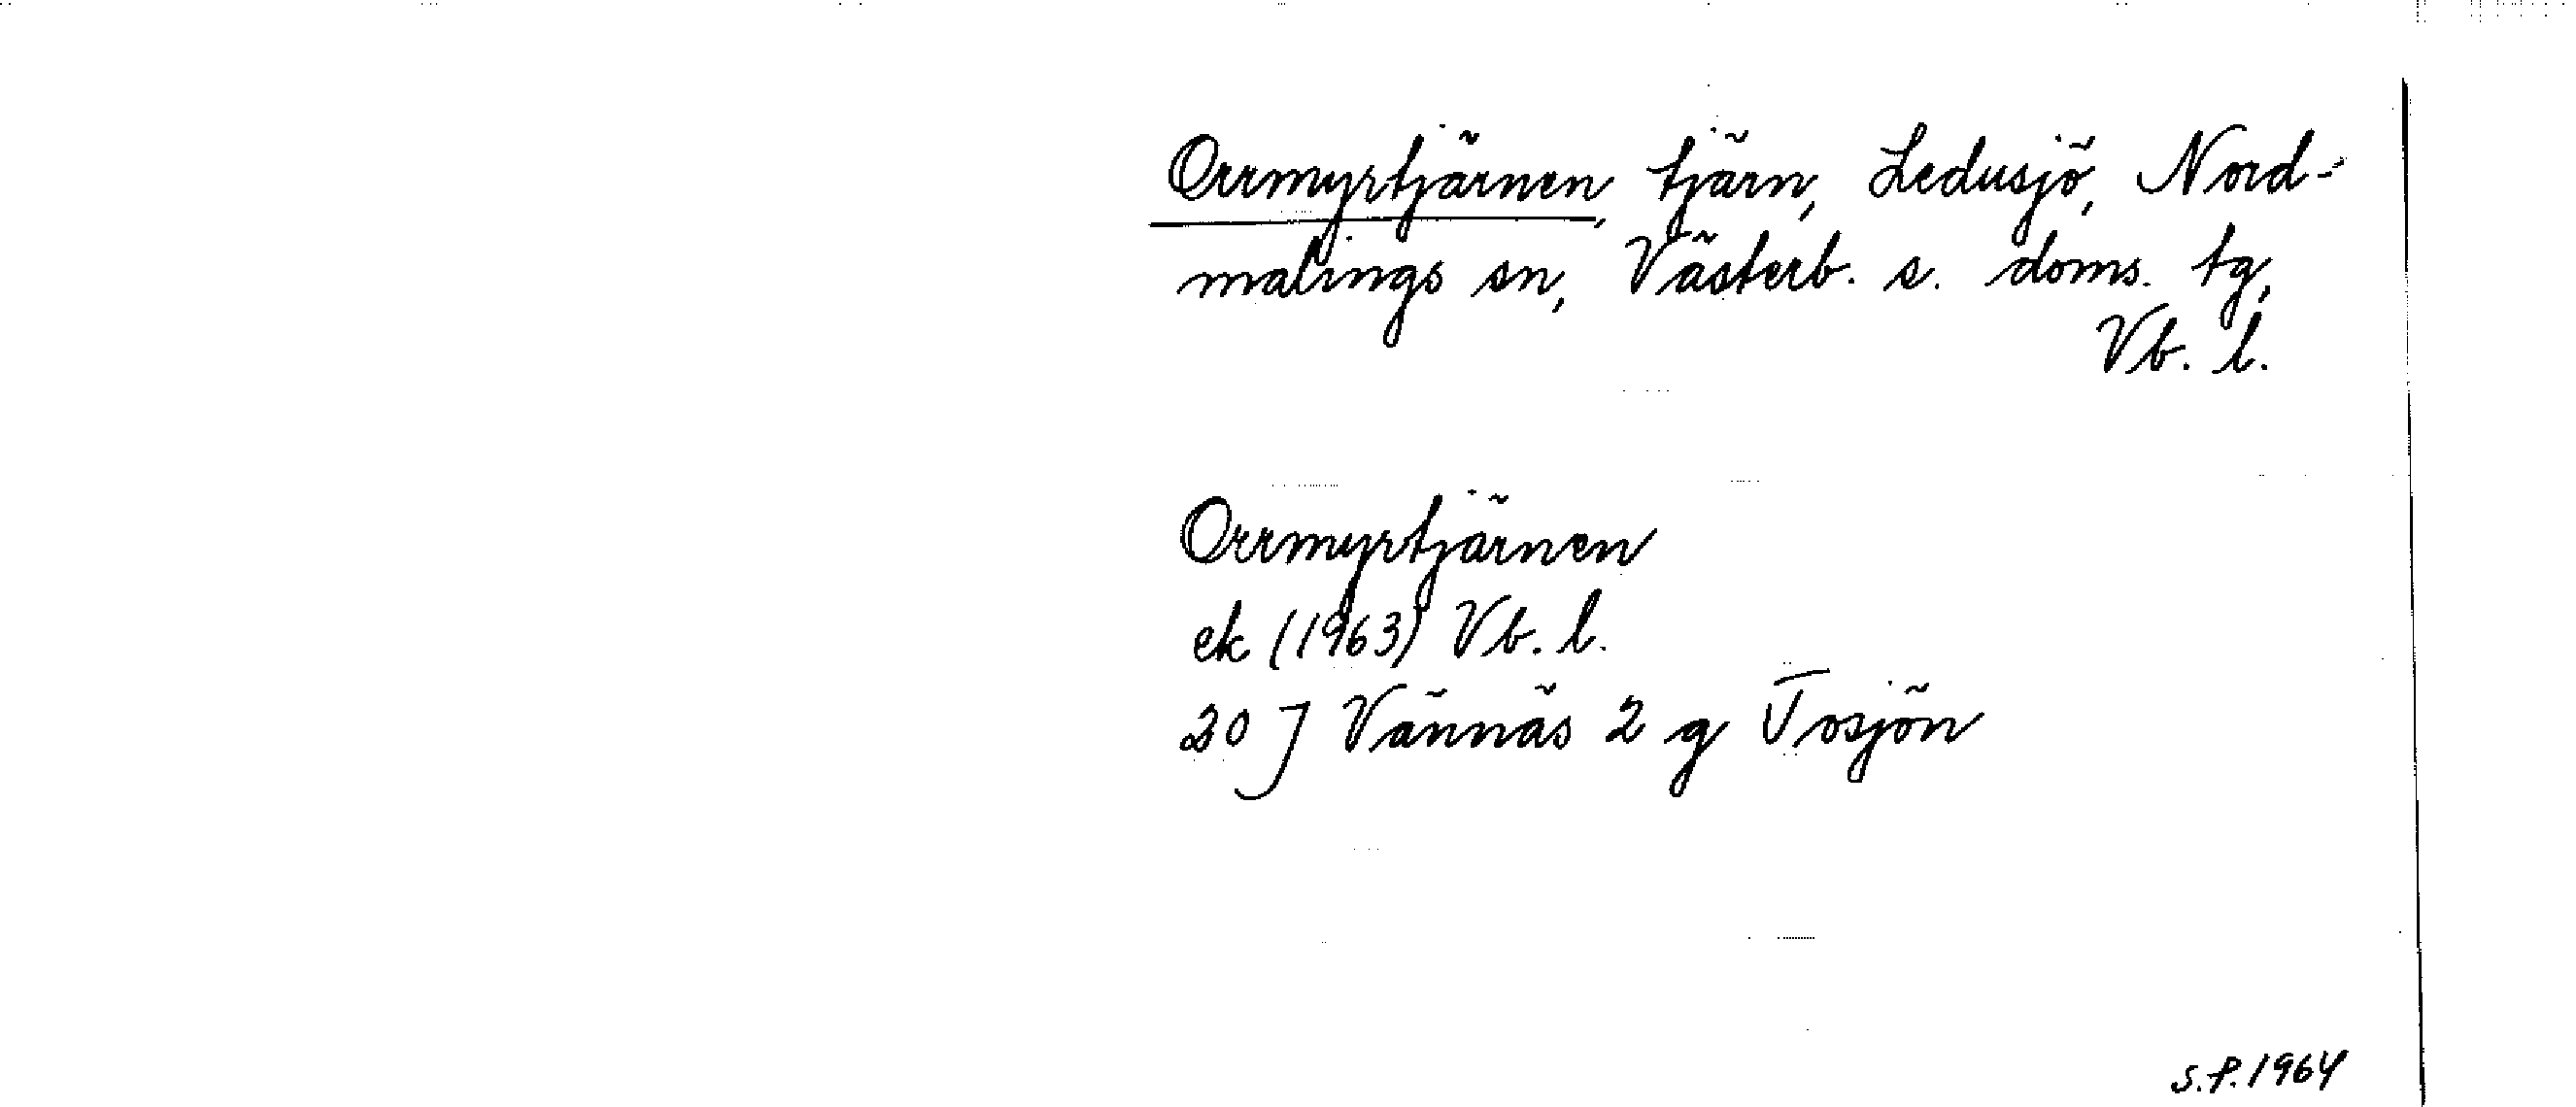 Orrmyrtjärnen, tjärn, Ledusjö, Nord-
malings sn, Västerb. s. doms. tg,
Vb. l.
Orrmyrtjärnen
ek (1963) Vb. l.
20 J Vännäs 2 g Tosjön
S.P. 1964